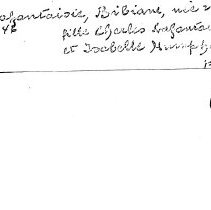 Lafantaisie, Bibiane, née
48 fille Charles Lafanta
et Isabelle Humph